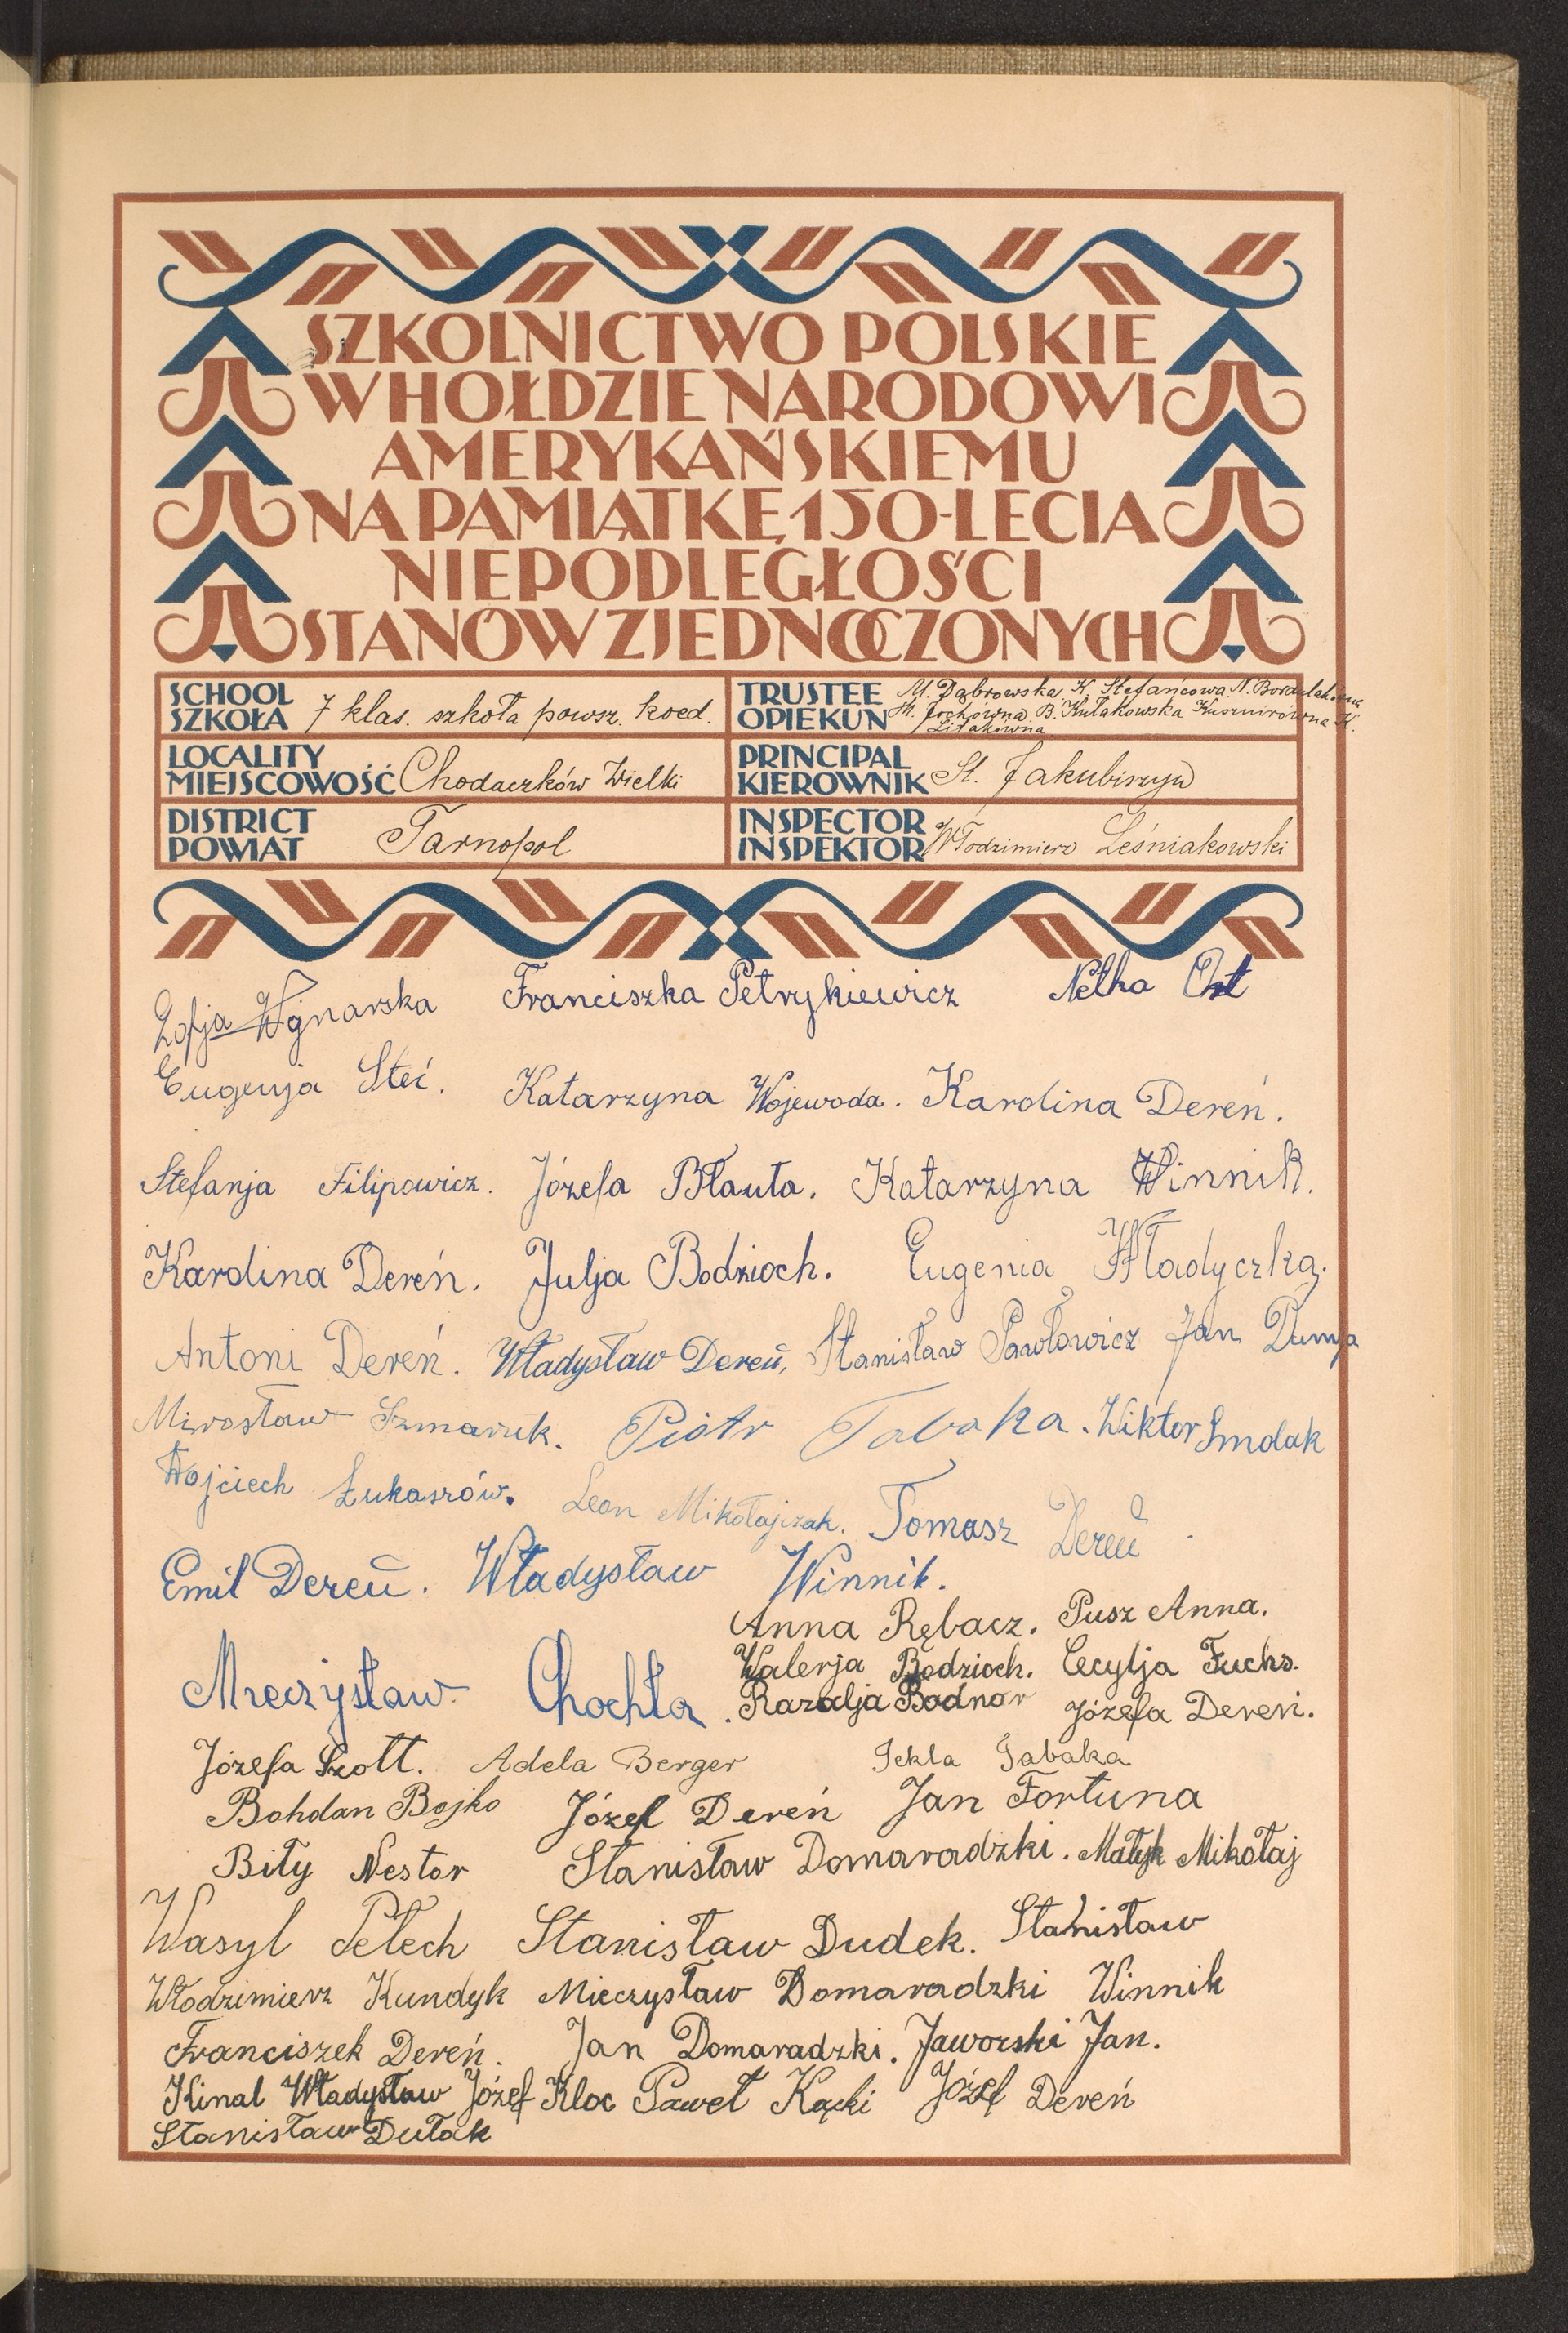 SZKOLNICTWO POLSKIE
W HOŁDZIE NARODOWI
AMERYKAŃSKIEMU
NA PAMIĄTKĘ 150-LECIA
NIEPODLEGŁOŚCI
STANÓW ZJEDNOCZONYCH
SCHOOL
SZKOŁA 7 klas. szkoła powsz. koed.
TRUSTEE M. Dąbrowska K. Stefańcowa N.
OPIEKUN B. Kułakowska Kusznirówna K.
Litakówna
LOCALITY
MIEJSCOWOŚĆ Chodaczków Wielki
PRINCIPAL
KIEROWNIK St. Jakubiszyn
DISTRICT
POWIAT Tarnopol
INSPECTOR
INSPEKTOR Włodzimierz Leśniakowski
Zofja Franciszka Petrykiewicz
Eugenja Steć. Katarzyna Wojewoda. Karolina Dereń.
Stefanja Filipowicz. Józefa Błauta. Katarzyna Winnik.
Karolina Dereń. Julja Bodzioch. Eugenia Władyczka.
Antoni Dereń. Władysław Dereń, Stanisław Pawłowicz Jan
Mirosław Piotr Tabaka. Wiktor Smolak
Wojciech Łukaszów. Leon Mikołajczak. Tomasz Dereń
Emil Dereń. Władysław Winnik.
Anna Rębacz. Pusz Anna.
Walerja Bodzioch. Cecylja Fuchs.
Mieczysław Chochla. Rozalja Bodnar Józefa Dereń.
Józefa Szott. Adela Berger Tekla Tabaka
Bohdan Bojko Józef Dereń Jan Fortuna
Biły Nestor Stanisław Domaradzki. Matyk Mikołaj
Wasyl Pełech Stanisław Dudek. Stanisław
Włodzimierz Kundyk Mieczysław Domaradzki Winnik
Franciszek Dereń. Jan Domaradzki. Jaworski Jan.
Kinal Władysław Józef Kloc Paweł Kącki Józef Dereń
Stanisław Dułak